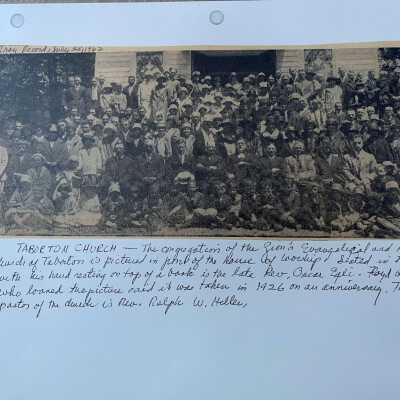 Troy Record, July 25, 1962
TABORTON CHURCH — The congregation of the Zion's Evangelical and R
church of Taborton is pictured in front of the House of Worship. Seated in
with his hand resting on top of a book is the late Rev. Oscar Egli. Floyd
who loaned the picture said it was taken in 1926 on an anniversary. T
pastor of the church is Rev. Ralph W. Heller.